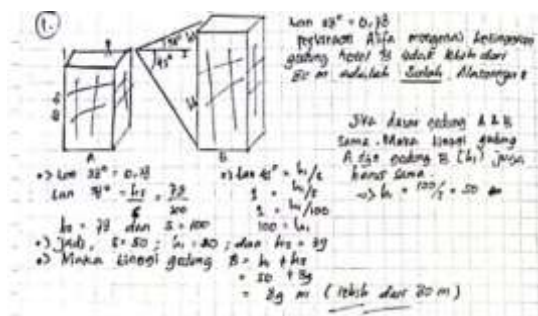 1.
38°
45°
h₁
A
B
tan 38° = 0,78
pernyataan Alfa mengenai ketinggian
gedung hotel B tidak lebih dari
80 m adalah salah. Alasannya:
Jika dasar gedung A & B
sama. Maka tinggi gedung
A dgn gedung B (h₁) juga
harus sama.
=> h₁ = 100/2 = 50
•) tan 38° = 0,78
tan 38° = h₂/s = 78/100
h₂ = 78 dan s = 100
•) tan 45° = h₁/s
1 = h₁/s
1 = h₁/100
100 = h₁
•) Jadi, s = 50 ; h₁ = 50 ; dan h₂ = 39
•) Maka tinggi gedung B = h₁ + h₂
= 50 + 39
= 89 m (lebih dari 80 m)